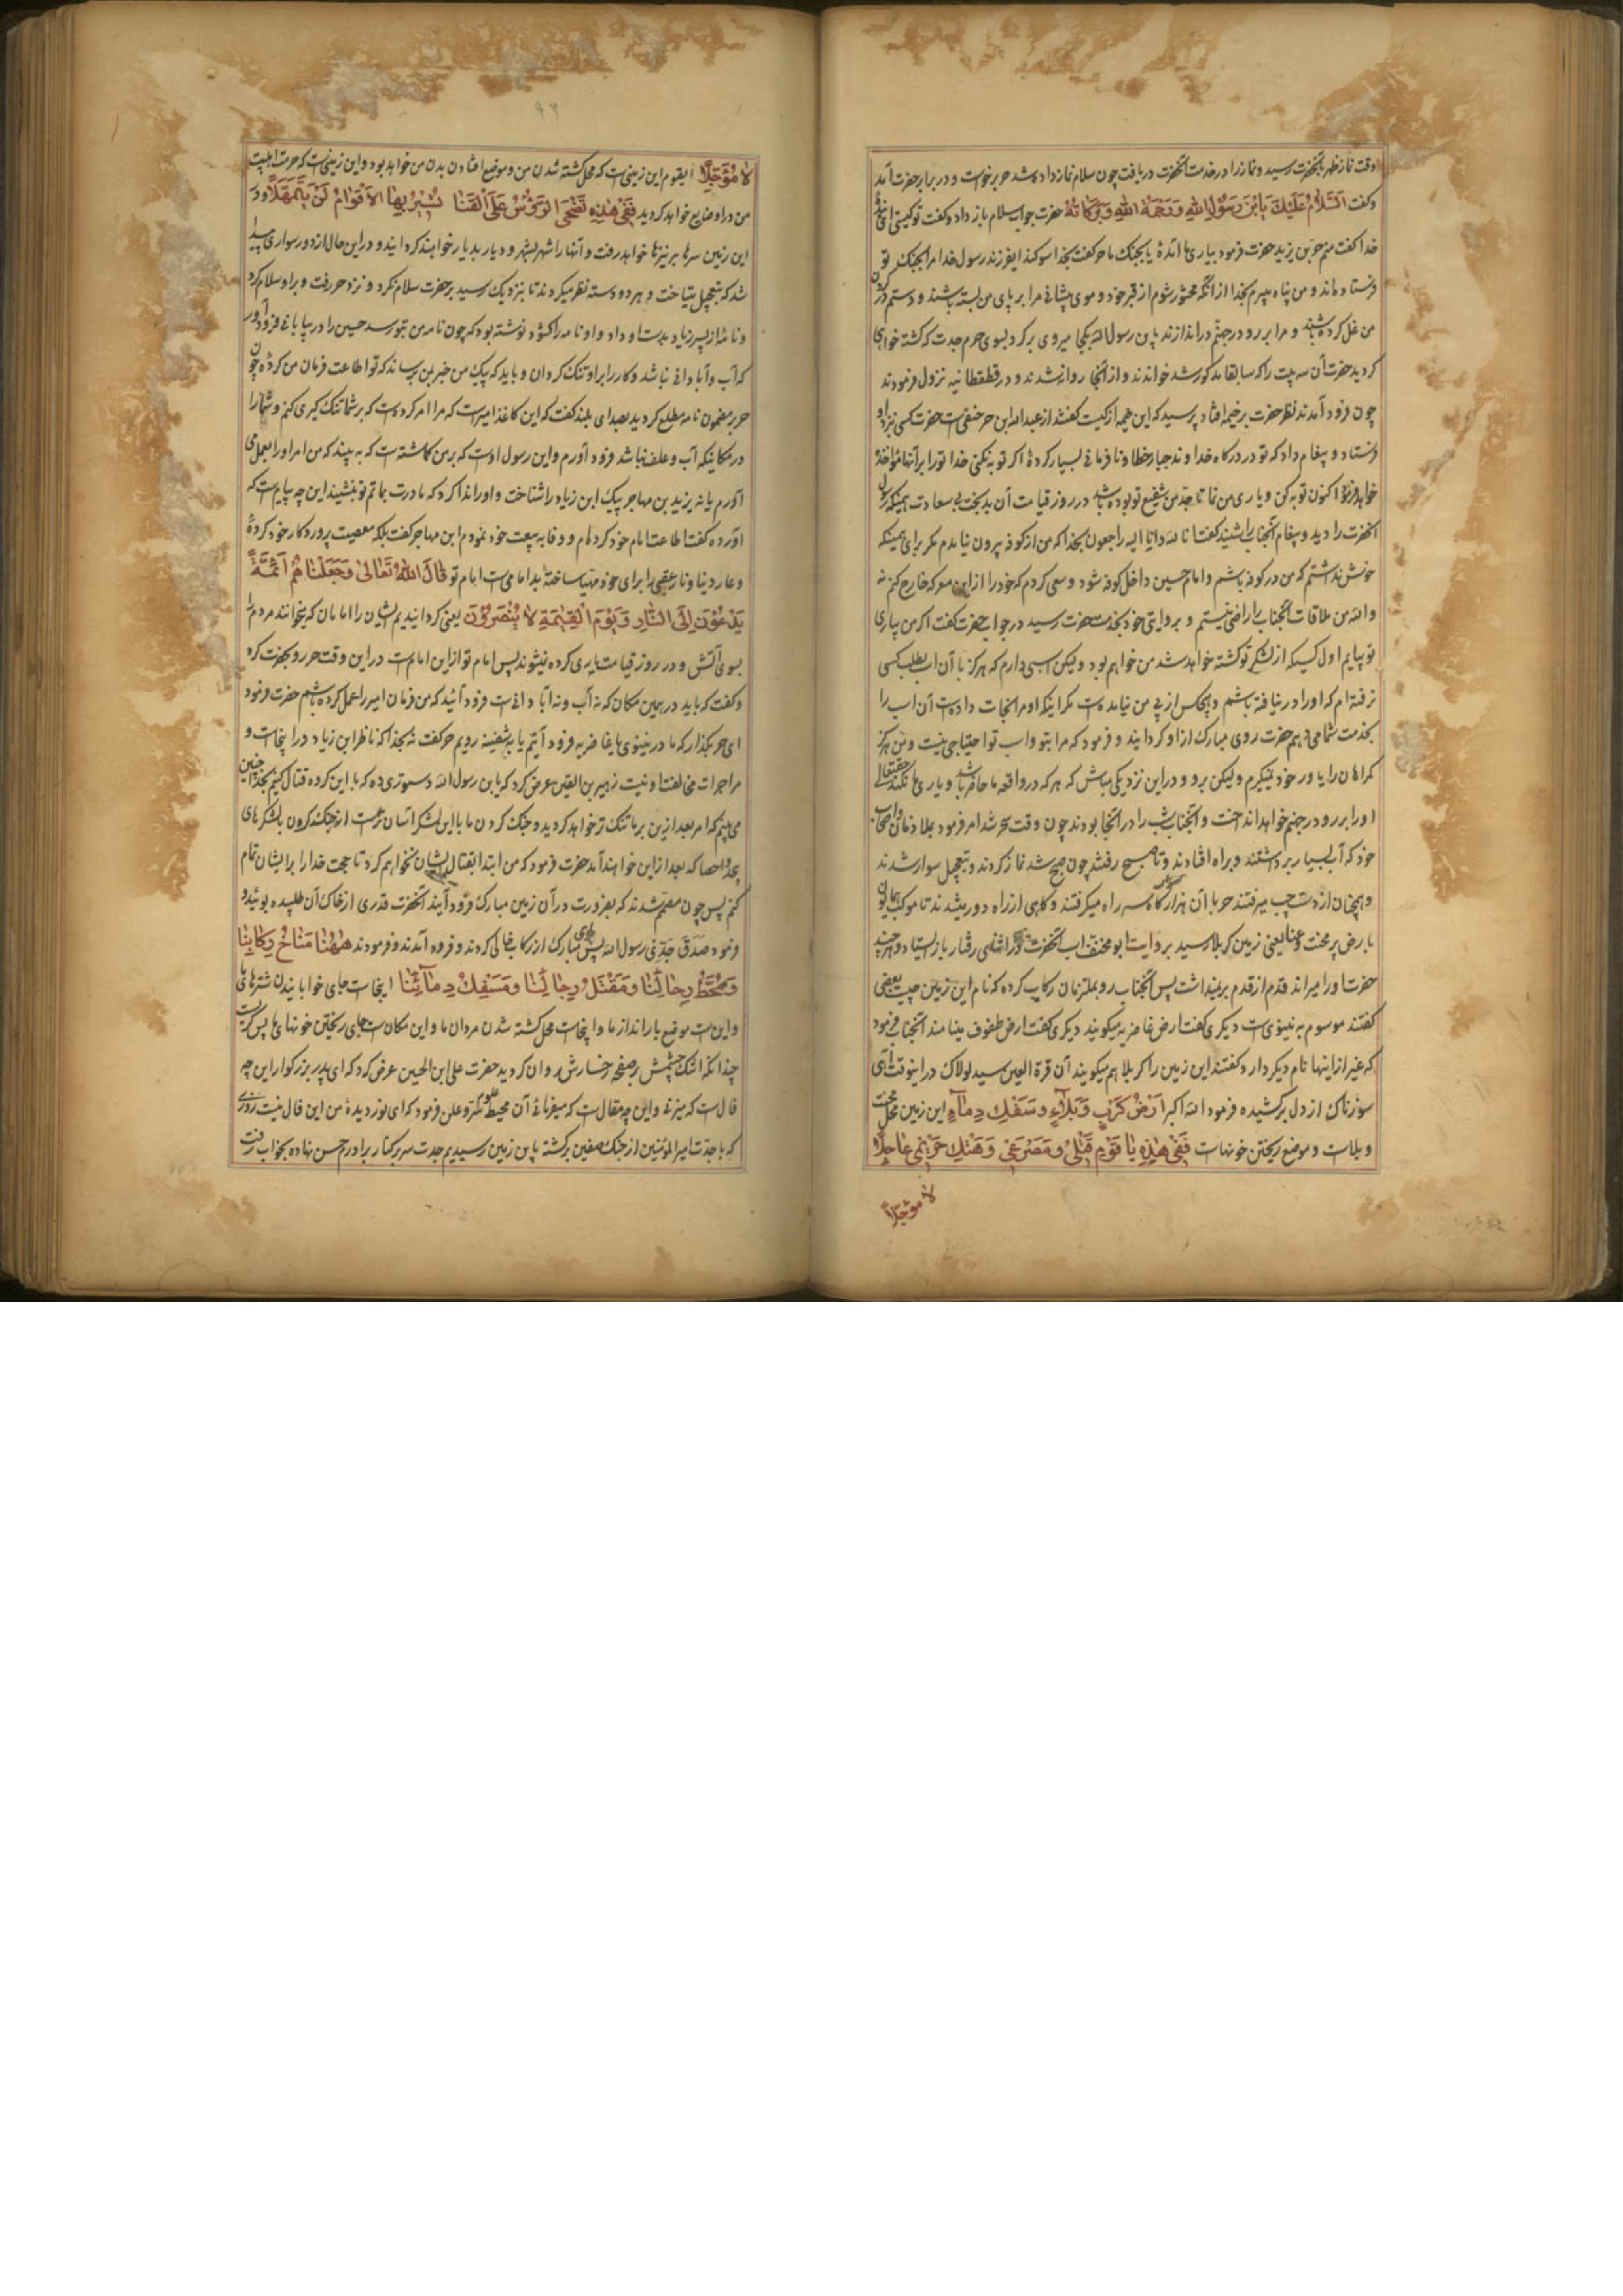 وقت نماز ظهر بآنحضرت رسید و نماز را در خدمت آنحضرت دریافت چون سلام نماز داده شد حر برخواست و در برابر حضرت آمد
و گفت اَلسَّلامُ عَلَیْكَ یَا بْنَ رَسُولِ اللهِ وَ رَحْمَةُ اللهِ وَ بَرَکَاتُهُ حضرت جواب سلام باز داد و گفت تو کیستی ای بنده
خدا گفت منم حر بن یزید حضرت فرمود بیاری ما آمدهٔ یا بجنك ما حر گفت بخدا سوکند ایفرزند رسول خدا مرا بجنك تو
فرستاده اند و من پناه میبرم بخدا از انکه محشور شوم از قبر خود و موی پیشانی مرا بر پای من بسته باشند و دستم در کردن
من غل کرده باشند و مرا بر رو در جهنم در اندازند یابن رسول الله بکجا میروی بر کرد بسوی حرم جدت که کشته خواهی
کردید حضرت آن سه بیت را که سابقا مذکور شد خواندند و از آنجا روانه شدند و در قطقطانیه نزول فرمودند
چون فرود آمدند نظر حضرت بر خیمه افتاد پرسید که این خیمه از کیست کفتند از عبدالله ابن حر حنفی است حضرت کسی نزد او
فرستاد و پیغام داد که تو در درکاه خداوند جبار خطا و نافرمانی بسیار کردهٔ اکر توبه نکنی خدا تو را بر آنها مؤاخذه
خواهد فرمود اکنون توبه کن و یاری من نما تا جد من شفیع تو بوده باشد در روز قیامت آن بدبخت بی سعادت همینکه رسول
آنحضرت را دید و پیغام آنجناب را شنید کفت انا لله وانا الیه راجعون بخدا که من از کوفه بیرون نیامدم مکر برای همینکه
خوش نداشتم که من در کوفه باشم و امام حسین داخل کوفه شود و سعی کردم که خود را از این معرکه خارج کنم نه
والله من ملاقات آنجناب را راضی نیستم و بروایتی خود بخدمت حضرت رسید در جواب حضرت کفت اکر من بیاری
تو بیایم اول کسیکه از لشکر تو کشته خواهد شد من خواهم بود ولیکن اسبی دارم که هرکز با آن اسب طلب کسی
نرفته ام که او را در نیافته باشم و هیچکس از پی من نیامده است مکر اینکه او مرا نجات داده است آن اسب را
بخدمت شما میدهم حضرت روی مبارك از او کردانید و فرمود که مرا بتو و اسب تو احتیاجی نیست و من هرکز
کمراهان را یاور خود نمیکیرم ولیکن برو و در این نزدیکی مباش که هر که در واقعه ما حاضر باشد و یاری ما نکند حقتعالی
او را بر رو در جهنم خواهد انداخت و آنجناب شب را در آنجا بودند چون وقت سحر شد امر فرمود بملازمان و اصحاب
خود که آب بسیار برداشتند و براه افتادند و تا صبح رفتند چون صبح شد نماز کردند و بتعجیل سوار شدند
و همچنان از دست چپ میرفتند حر با آن هزار سوار کاه سر راه میکرفتند و کاهی از راه دور میشدند تا موکب همایون
بارض پر محنت و عنا یعنی زمین کربلا رسید بروایت ابو مخنف اسب آنحضرت در اثنای رفتار باز ایستاد و هر چند
حضرت او را میراند قدم از قدم بر نمیداشت پس آنجناب رو بملتزمان رکاب کرده که نام این زمین چیست بعضی
کفتند موسوم به نینوی است دیکری کفت ارض غاضریه میکویند دیکری کفت ارض طفوف مینامند آنجناب فرمود
که غیر از اینها نام دیکر دارد کفتند این زمین را کربلا هم میکویند آن قرة العین سید لولاك در اینوقت آهی
سوزناك از دل برکشیده فرمود الله اکبر اَرْضُ کَرْبٍ وَ بَلاءٍ وَ سَفْكِ دِماءٍ این زمین محل محنت
و بلاست و موضع ریختن خونهاست فَفِی هٰذِهِ یَا قَوْمِ قَتْلِی وَ مَصْرَعِی وَ هَتْكُ حَرِیمِی عاجِلًا
لا مؤجلاً
۹۲
لا مُؤَجَّلًا ایقوم این زمینی است که محل کشته شدن من و موضع افتادن بدن من خواهد بود و این زمینی است که حرمت اهلبیت
من در او ضایع خواهد کردید فَفِی هٰذِهِ تَضْحَی الرُّؤُسُ عَلَی الْقَنَا یُسِیرُ بِهَا الْاَقْوَامُ لَنْ یَتَمَهَّلَا و در
این زمین سرها بر نیزها خواهد رفت و آنها را شهر بشهر و دیار بدیار خواهند کردانید و در این حال از دور سواری پیدا
شد که بتعجیل میتاخت و هر دو دسته نظر میکردند تا بنزدیك رسید بر حضرت سلام نکرد و نزد حر رفت و بر او سلام کرد
و نامهٔ از پسر زیاد بدست او داد و او نامه را کشود نوشته بود که چون نامه من بتو رسد حسین را در بیابانی فرود آور
که آب و آبادانی نباشد و کار را بر او تنك کردان و باید که پیك من خبر بمن برساند که تو اطاعت فرمان من کردهٔ چون
حر بر مضمون نامه مطلع کردید بصدای بلند کفت که این کاغذ امیر است که مرا امر کرده است که بر شما تنك کیری کنم و شما را
در مکانیکه آب و علف نباشد فرود آورم و این رسول اوست که بر من کماشته است که به بیند که من امر او را بعمل می
آورم یا نه یزید بن مهاجر پیك ابن زیاد را شناخت و او را ندا کرد که مادرت بماتم تو بنشیند این چه پیام است که
آوردهٔ کفت اطاعت امام خود کرده ام و وفا به بیعت خود نمودم ابن مهاجر کفت بلکه معصیت پروردکار خود کردهٔ
و عار دنیا و نار عقبی را برای خود مهیا ساختهٔ بد امامی است امام تو قَالَ اللهُ تَعَالیٰ وَ جَعَلْنَاهُمْ اَئِمَّةً
یَدْعُونَ اِلَی النَّارِ وَ یَوْمَ الْقِیٰمَةِ لا یُنْصَرُونَ یعنی کردانیدیم ایشان را امامان که میخوانند مردم را
بسوی آتش و در روز قیامت یاری کرده نمیشوند پس امام تو از این امام است در این وقت حر رو بحضرت کرد
و کفت که باید در همین مکان که نه آب و نه آبادانی است فرود آئید که من فرمان امیر را عمل کرده باشم حضرت فرمود
ای حر بکذار که ما در نینوی یا غاضریه فرود آئیم یا به شفینه رویم حر کفت نه بخدا که ناظر ابن زیاد در اینجاست و
مرا جرات مخالفت او نیست زهیر بن القین عرض کرد که یابن رسول الله دستوری ده که با این کرده قتال کنیم بخدا چنین
می بینم که امر بعد از این بر ما تنك تر خواهد کردید و جنك کردن ما با این لشکر آسان تر است از جنك کردن بالشکرهای
بیحد و احصا که بعد از این خواهند آمد حضرت فرمود که من ابتدا بقتال ایشان نخواهم کرد تا حجت خدا را بر ایشان تمام
کنم پس چون مصمم شدند که بضرورت در آن زمین مبارك فرود آیند آنحضرت قدری از خاك آن طلبیده بوئید و
فرمود صَدَقَ جَدّی رسول الله پس پای مبارك از رکاب خالی کردند و فرود آمدند و فرمودند هٰهُنَا مَنَاخُ رِکَابِنَا
وَ مَحَطُّ رِحَالِنَا وَ مَقْتَلُ رِجَالِنَا وَ مَسْفَكُ دِمَآئِنَا اینجاست جای خوابانیدن شترهای ما
و این است موضع بار انداز ما و اینجاست محل کشته شدن مردان ما و این مکان است جای ریختن خونهای ما پس کریست
چندانکه اشك چشمش بر صفحه رخسارش روان کردید حضرت علی ابن الحسین عرض کرد که ای پدر بزرکوار این چه
فال است که میزنی و این چه مقال است که میفرمائی آن محیط علم سر و علن فرمود که ای نور دیدهٔ من این فال نیست روزی
که با جدت امیرالمؤمنین از جنك صفین برکشته باین زمین رسیدیم جدت سر بر کنار برادرم حسن نهاده بخواب رفت